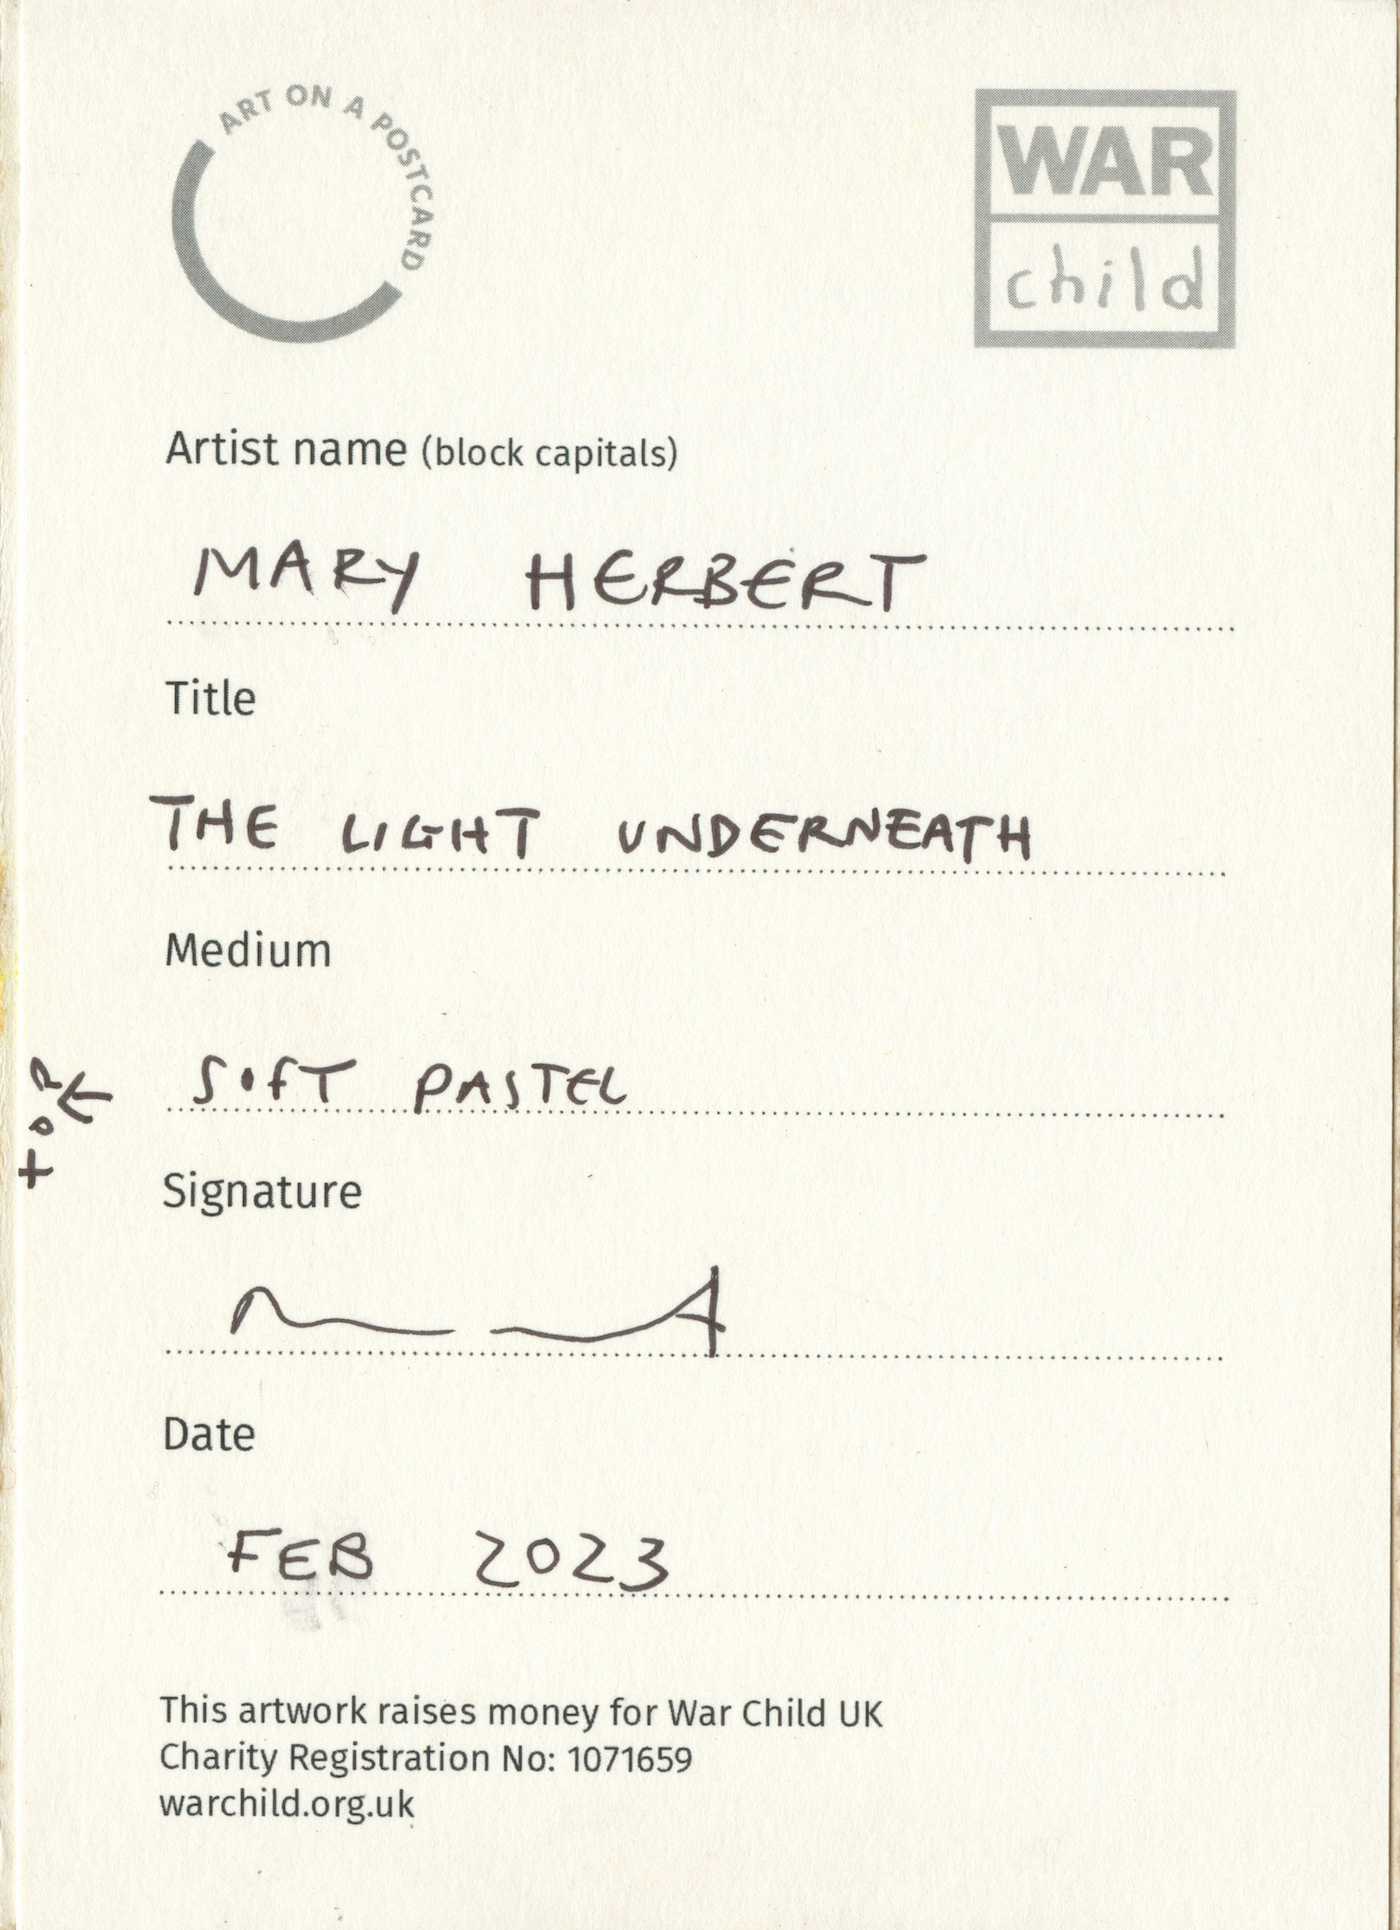 ART ON A POSTCARD
WAR
child
Artist name (block capitals)
MARY HERBERT
Title
THE LIGHT UNDERNEATH
Medium
SOFT PASTEL
TOP
Signature
Date
FEB 2023
This artwork raises money for War Child UK
Charity Registration No: 1071659
warchild.org.uk